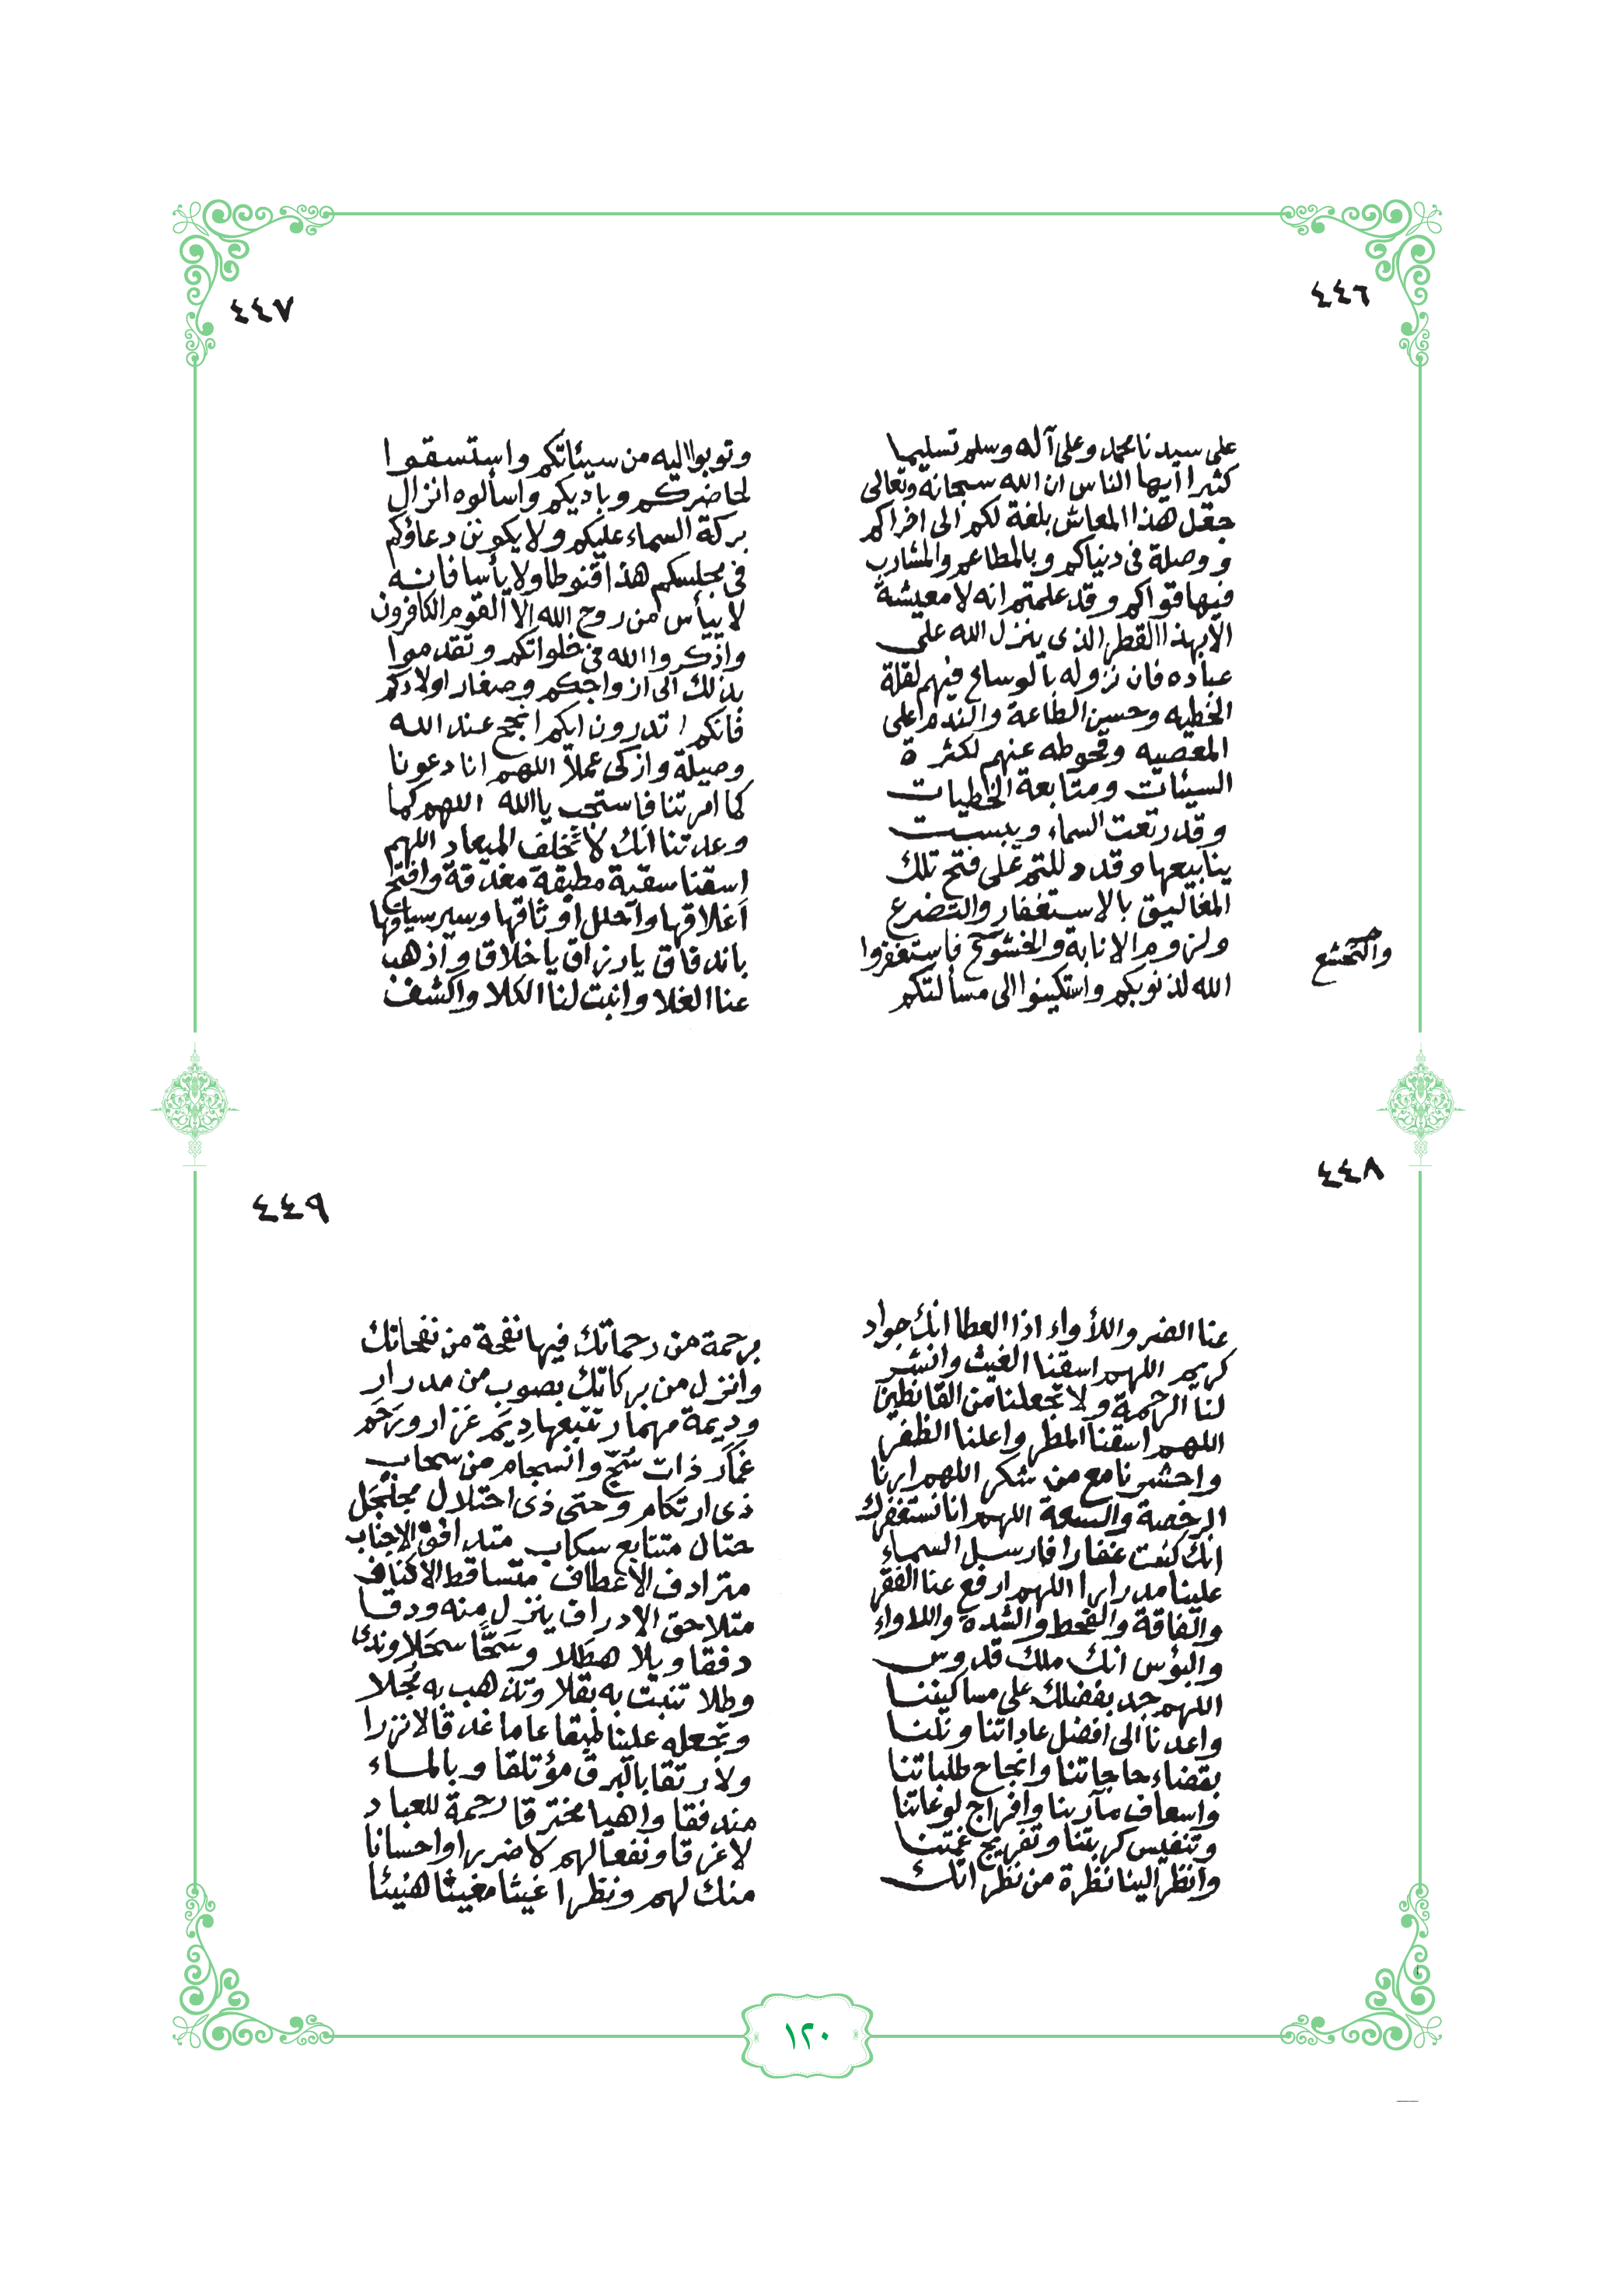 ٤٤٦
على سيدنا محمد وعلى آله وسلم تسليما
كثيرا أيها الناس ان الله سبحانه وتعالى
جعل هذا المعاش بلغة لكم الى اخراكم
ووصلة في دنياكم وبالمطاعم والمشارب
فيها قواكم وقد علمتم انه لا معيشة
الا بهذا القطر الذى ينزل الله على
عباده فان نزوله بالوسايح فيهم لقلة
الخطيه وحسن الطاعة والندم على
المعصيه وقحوطه عنهم لكثرة
السيئات ومتابعة الخطيات
وقد رتعت السماء ويبست
ينابيعها وقد دللتم على فتح تلك
المغاليق بالاستغفار والتضرع
ولزوم الانابة والخشوع فاستغفروا
والتخشع
الله لذنوبكم واستكينوا الى مسألتكم
٤٤٧
وتوبوا اليه من سيئاتكم واستسقوا
لحاضركم وباديكم واسألوه انزال
بركة السماء عليكم ولا يكونن دعاؤكم
في مجلسكم هذا قنوطا ولا يأسا فانه
لا ييأس من روح الله الا القوم الكافرون
واذكروا الله في خلواتكم وتقدموا
بذلك الى ازواجكم وصغار اولادكم
فانكم لا تدرون ايكم انجح عند الله
وصيلة وازكى عملا اللهم انا دعونا
كما امرتنا فاستجب يا الله اللهم كما
وعدتنا انك لا تخلف الميعاد اللهم
اسقنا سقية مطبقة مغدقة وافتح
اغلاقها واحلل اوثاقها وسير سياقها
باندفاق يا رزاق يا خلاق واذهب
عنا الغلا وانبت لنا الكلا واكشف
٤٤٨
عنا الضر واللأواء اذا العطا انك جواد
كريم اللهم اسقنا الغيث وانشر
لنا الرحمة ولا تجعلنا من القانطين
اللهم اسقنا المطر واعلنا الظفر
واحشرنا مع من شكر اللهم ارنا
الرخصة والسعة اللهم انا نستغفرك
انك كنت غفارا فارسل السماء
علينا مدرارا اللهم ارفع عنا الفقر
والفاقة والقحط والشدة واللاواء
والبؤس انك ملك قدوس
اللهم جد بفضلك على مساكيننا
واعدنا الى افضل عاداتنا ونلنا
بقضاء حاجاتنا وانجاح طلباتنا
واسعاف مآربنا وافراج لوغاتنا
وتنفيس كربتنا وتفريج غمتنا
وانظر الينا نظرة من نظراتك
٤٤٩
برحمة من رحماتك فيها نفحة من نفحاتك
وانزل من بركاتك بصوب من مدرار
وديمة مهمار تتبعها ديم غزار ورحم
غمار ذات سح وانسجام من سحاب
ذى ارتكام وحتى ذى احتلال مجلجل
حتال متتابع سكاب متدافق الاجناب
مترادف الاعطاف متساقط الاكناف
متلاحق الادراف ينزل منه ودقا
دفقا وبلا هطلا وسحا سحلا وندى
وطلا تنبت به بقلا وتذهب به مُحلا
وتجعله علينا طبقا عاما غدقا لا نزرا
ولا رتقا بالبرق مؤتلقا وبالماء
مندفقا واهيا مخترقا رحمة للعباد
لا غرقا ونفعا لهم لا ضررا واحسانا
منك لهم ونظرا غيثا مغيثا هنيئا
١٢٠